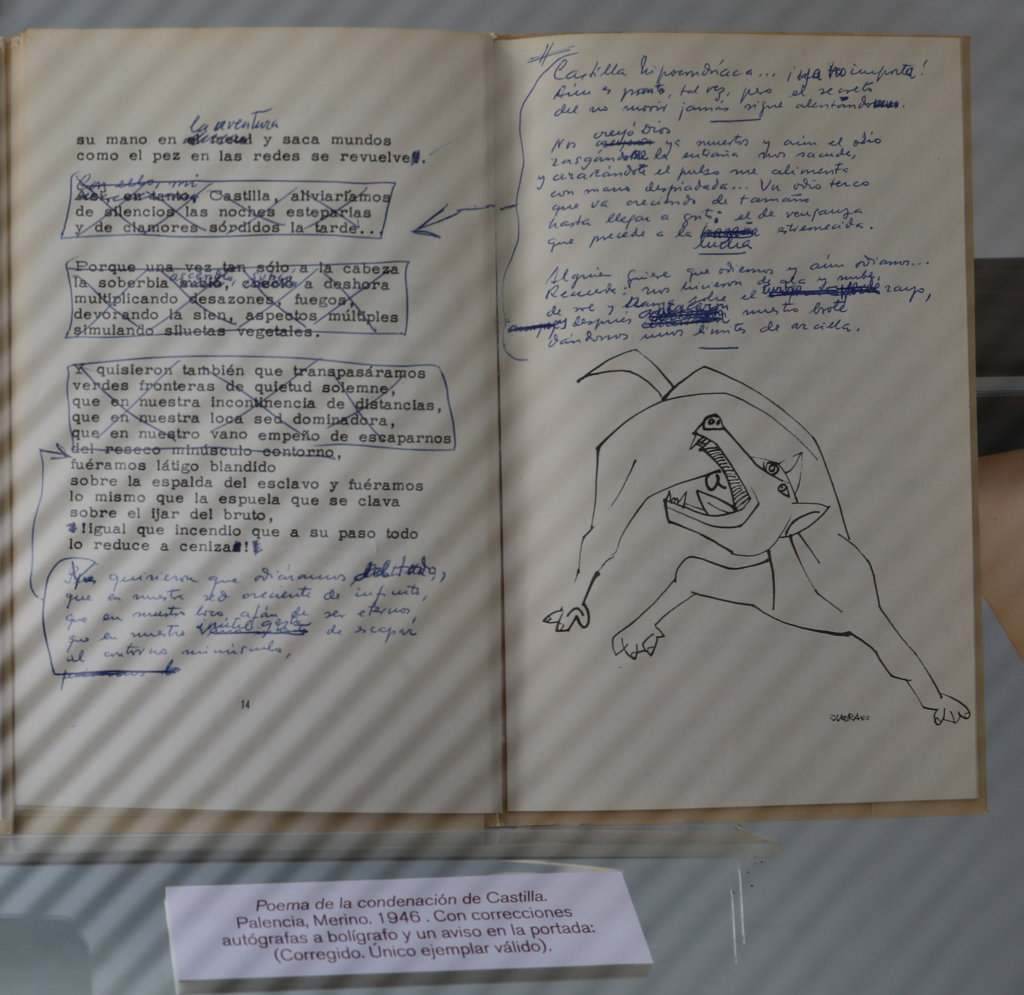 la aventura
su mano en y saca mundos
como el pez en las redes se revuelve.
Con ellos, mi
Así, en tanto, Castilla, aliviaríamos
de silencios las noches esteparias
y de clamores sórdidos la tarde...
Porque una vez tan sólo a la cabeza
ascendió, subió
la soberbia subió, creció a deshora
multiplicando desazones, fuegos,
devorando la sien, aspectos múltiples
simulando siluetas vegetales.
Y quisieron también que transpasáramos
verdes fronteras de quietud solemne,
que en nuestra incontinencia de distancias,
que en nuestra loca sed dominadora,
que en nuestro vano empeño de escaparnos
del reseco minúsculo contorno,
fuéramos látigo blandido
sobre la espalda del esclavo y fuéramos
lo mismo que la espuela que se clava
sobre el ijar del bruto,
!igual que incendio que a su paso todo
lo reduce a ceniza!
quisieron que odiáramos
que en nuestra sed creciente de infinito,
que en nuestro loco afán de ser eternos
que en nuestro inútil gesto de escapar
al contorno minúsculo,
14
Castilla hipocondríaca... ¡ya no importa!
Aún es pronto, tal vez, pero el secreto
del no morir jamás sigue alentándonos.
creyó Dios
Nos ya muertos y aún el odio
rasgándote la entraña nos sacude,
y acarándote el pulso me alimenta
con mano despiadada... Un odio terco
que va creciendo de tamaño
hasta llegar a grito: el de venganza
que precede a la estremecida.
lucha
Alguien quiere que odiemos y aún odiamos...
Recuerda: nos hicieron de ala y nube,
de sol y llama sobre el rayo,
y después nuestro brote
dándonos unos límites de arcilla.
Poema de la condenación de Castilla.
Palencia, Merino. 1946 . Con correcciones
autógrafas a bolígrafo y un aviso en la portada:
(Corregido. Único ejemplar válido).